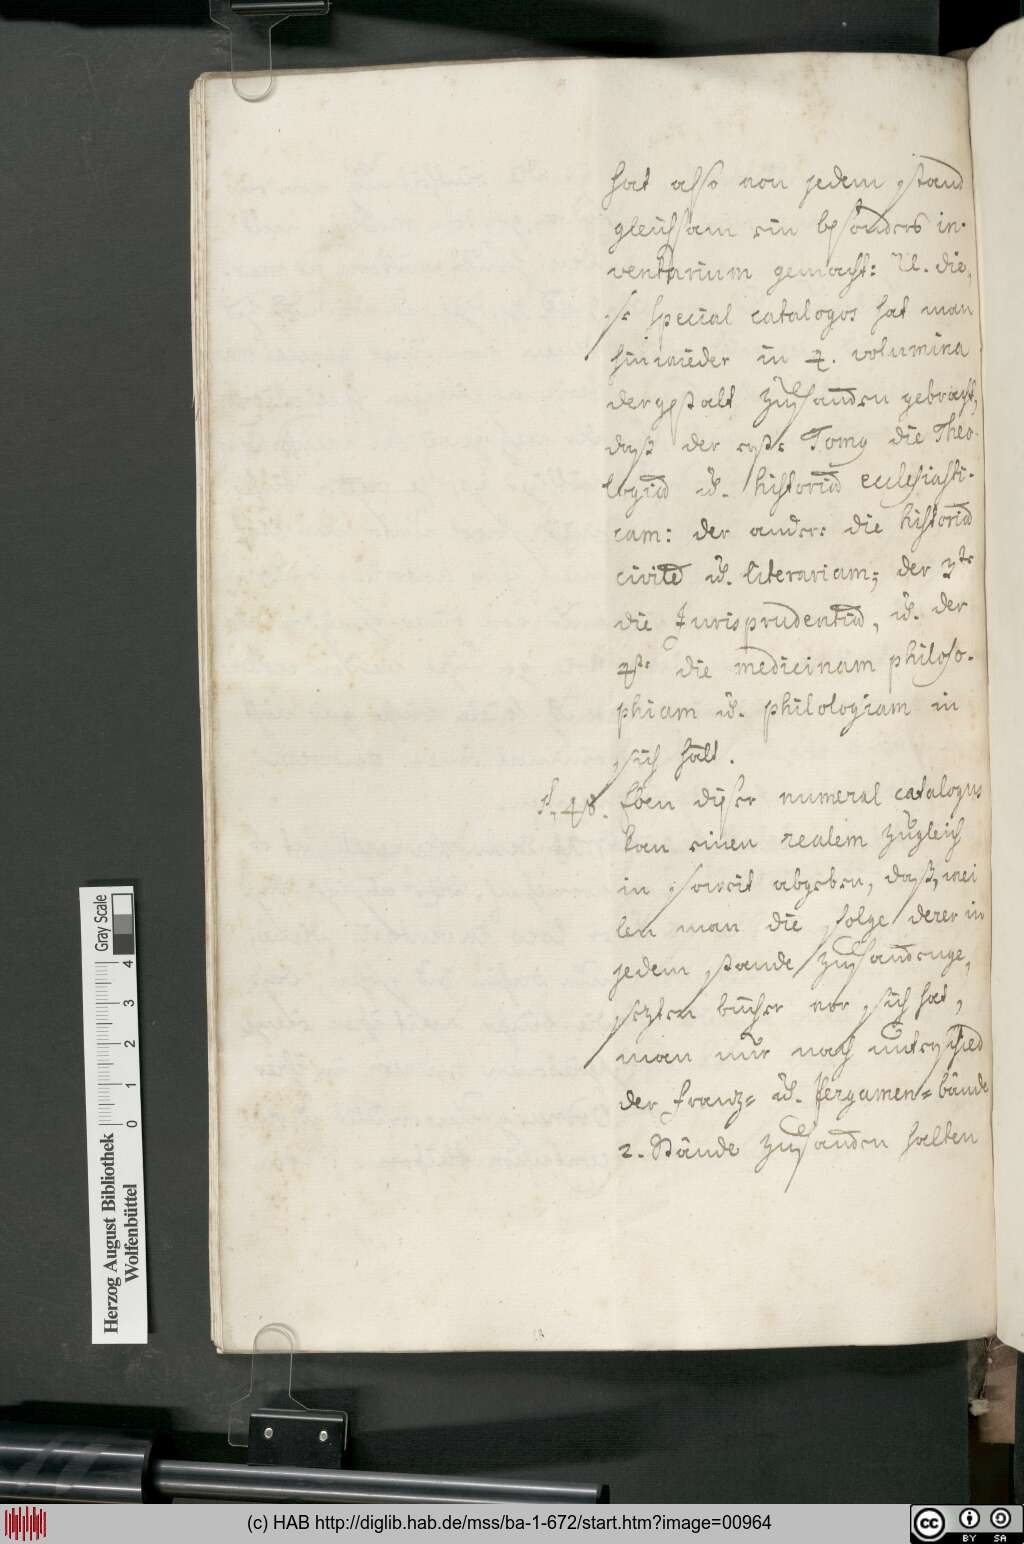 hat also von jedem stand
gleichsam ein besonders in-
ventarium gemacht: U. die,
se special catalogos hat man
hinwieder in 4. volumina
dergestalt zusam̄en gebracht,
daß der erste Tomq die Theo-
logiā u. historiā ecclesiasti-
cam: der andere die historiā
civilē u. literariam; der 3te
die Jurisprudentiā, u. der
4te die medicinam philoso-
phiam u. philologiam in
sich hält.
§. 48. Eben dieser numeral catalogus
kan einen realem zugleich
in soweit abgeben, daß, wei
len man die folge derer in
jedem stande zusam̄enge,
sezten bücher vor sich hat,
man nur nach unterschied
der Franz= u. Pergamen=bände
2. Stände zusam̄en halten
Gray Scale
0 1 2 3 4
Herzog August Bibliothek
Wolfenbüttel
(c) HAB http://diglib.hab.de/mss/ba-1-672/start.htm?image=00964
cc BY SA